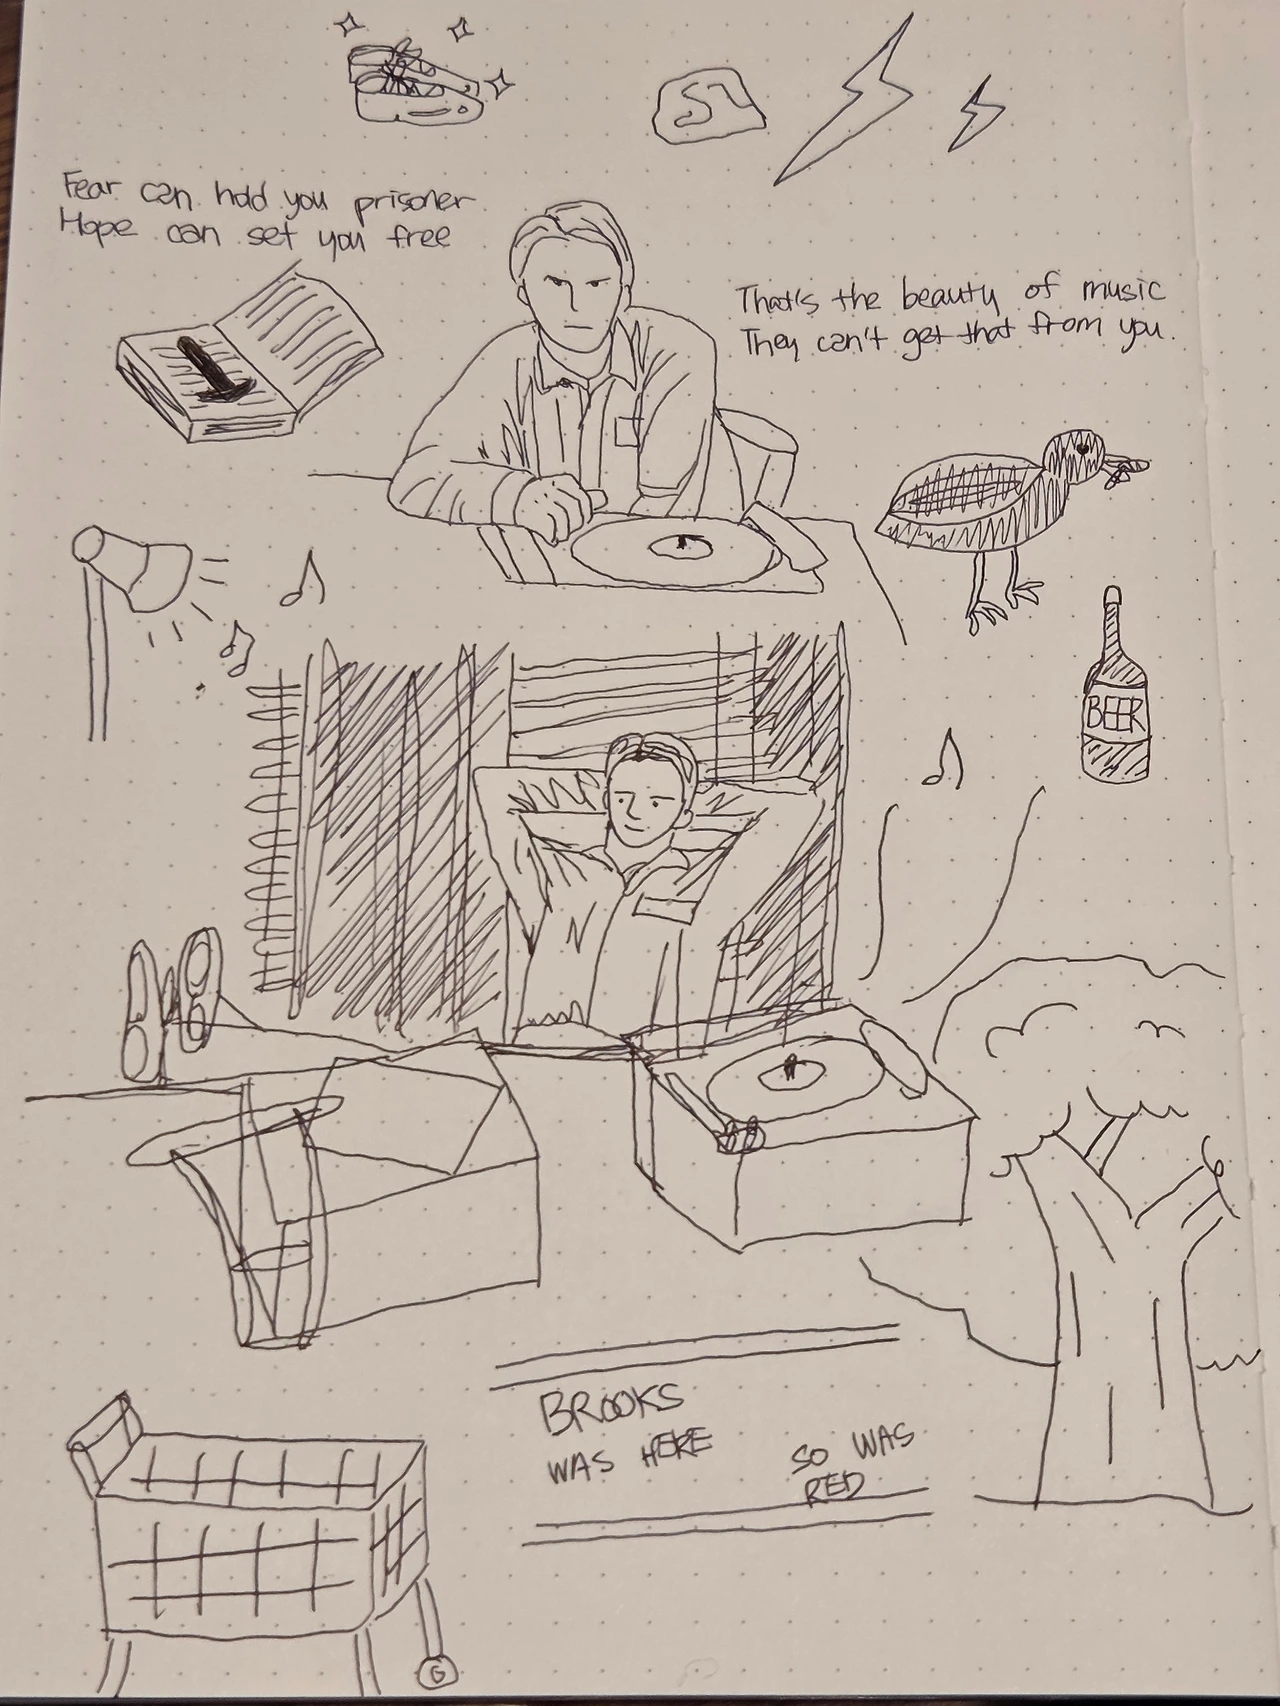 Fear can hold you prisoner
Hope can set you free
That's the beauty of music
They can't get that from you.
BEER
BROOKS
WAS HERE
SO WAS
RED
G